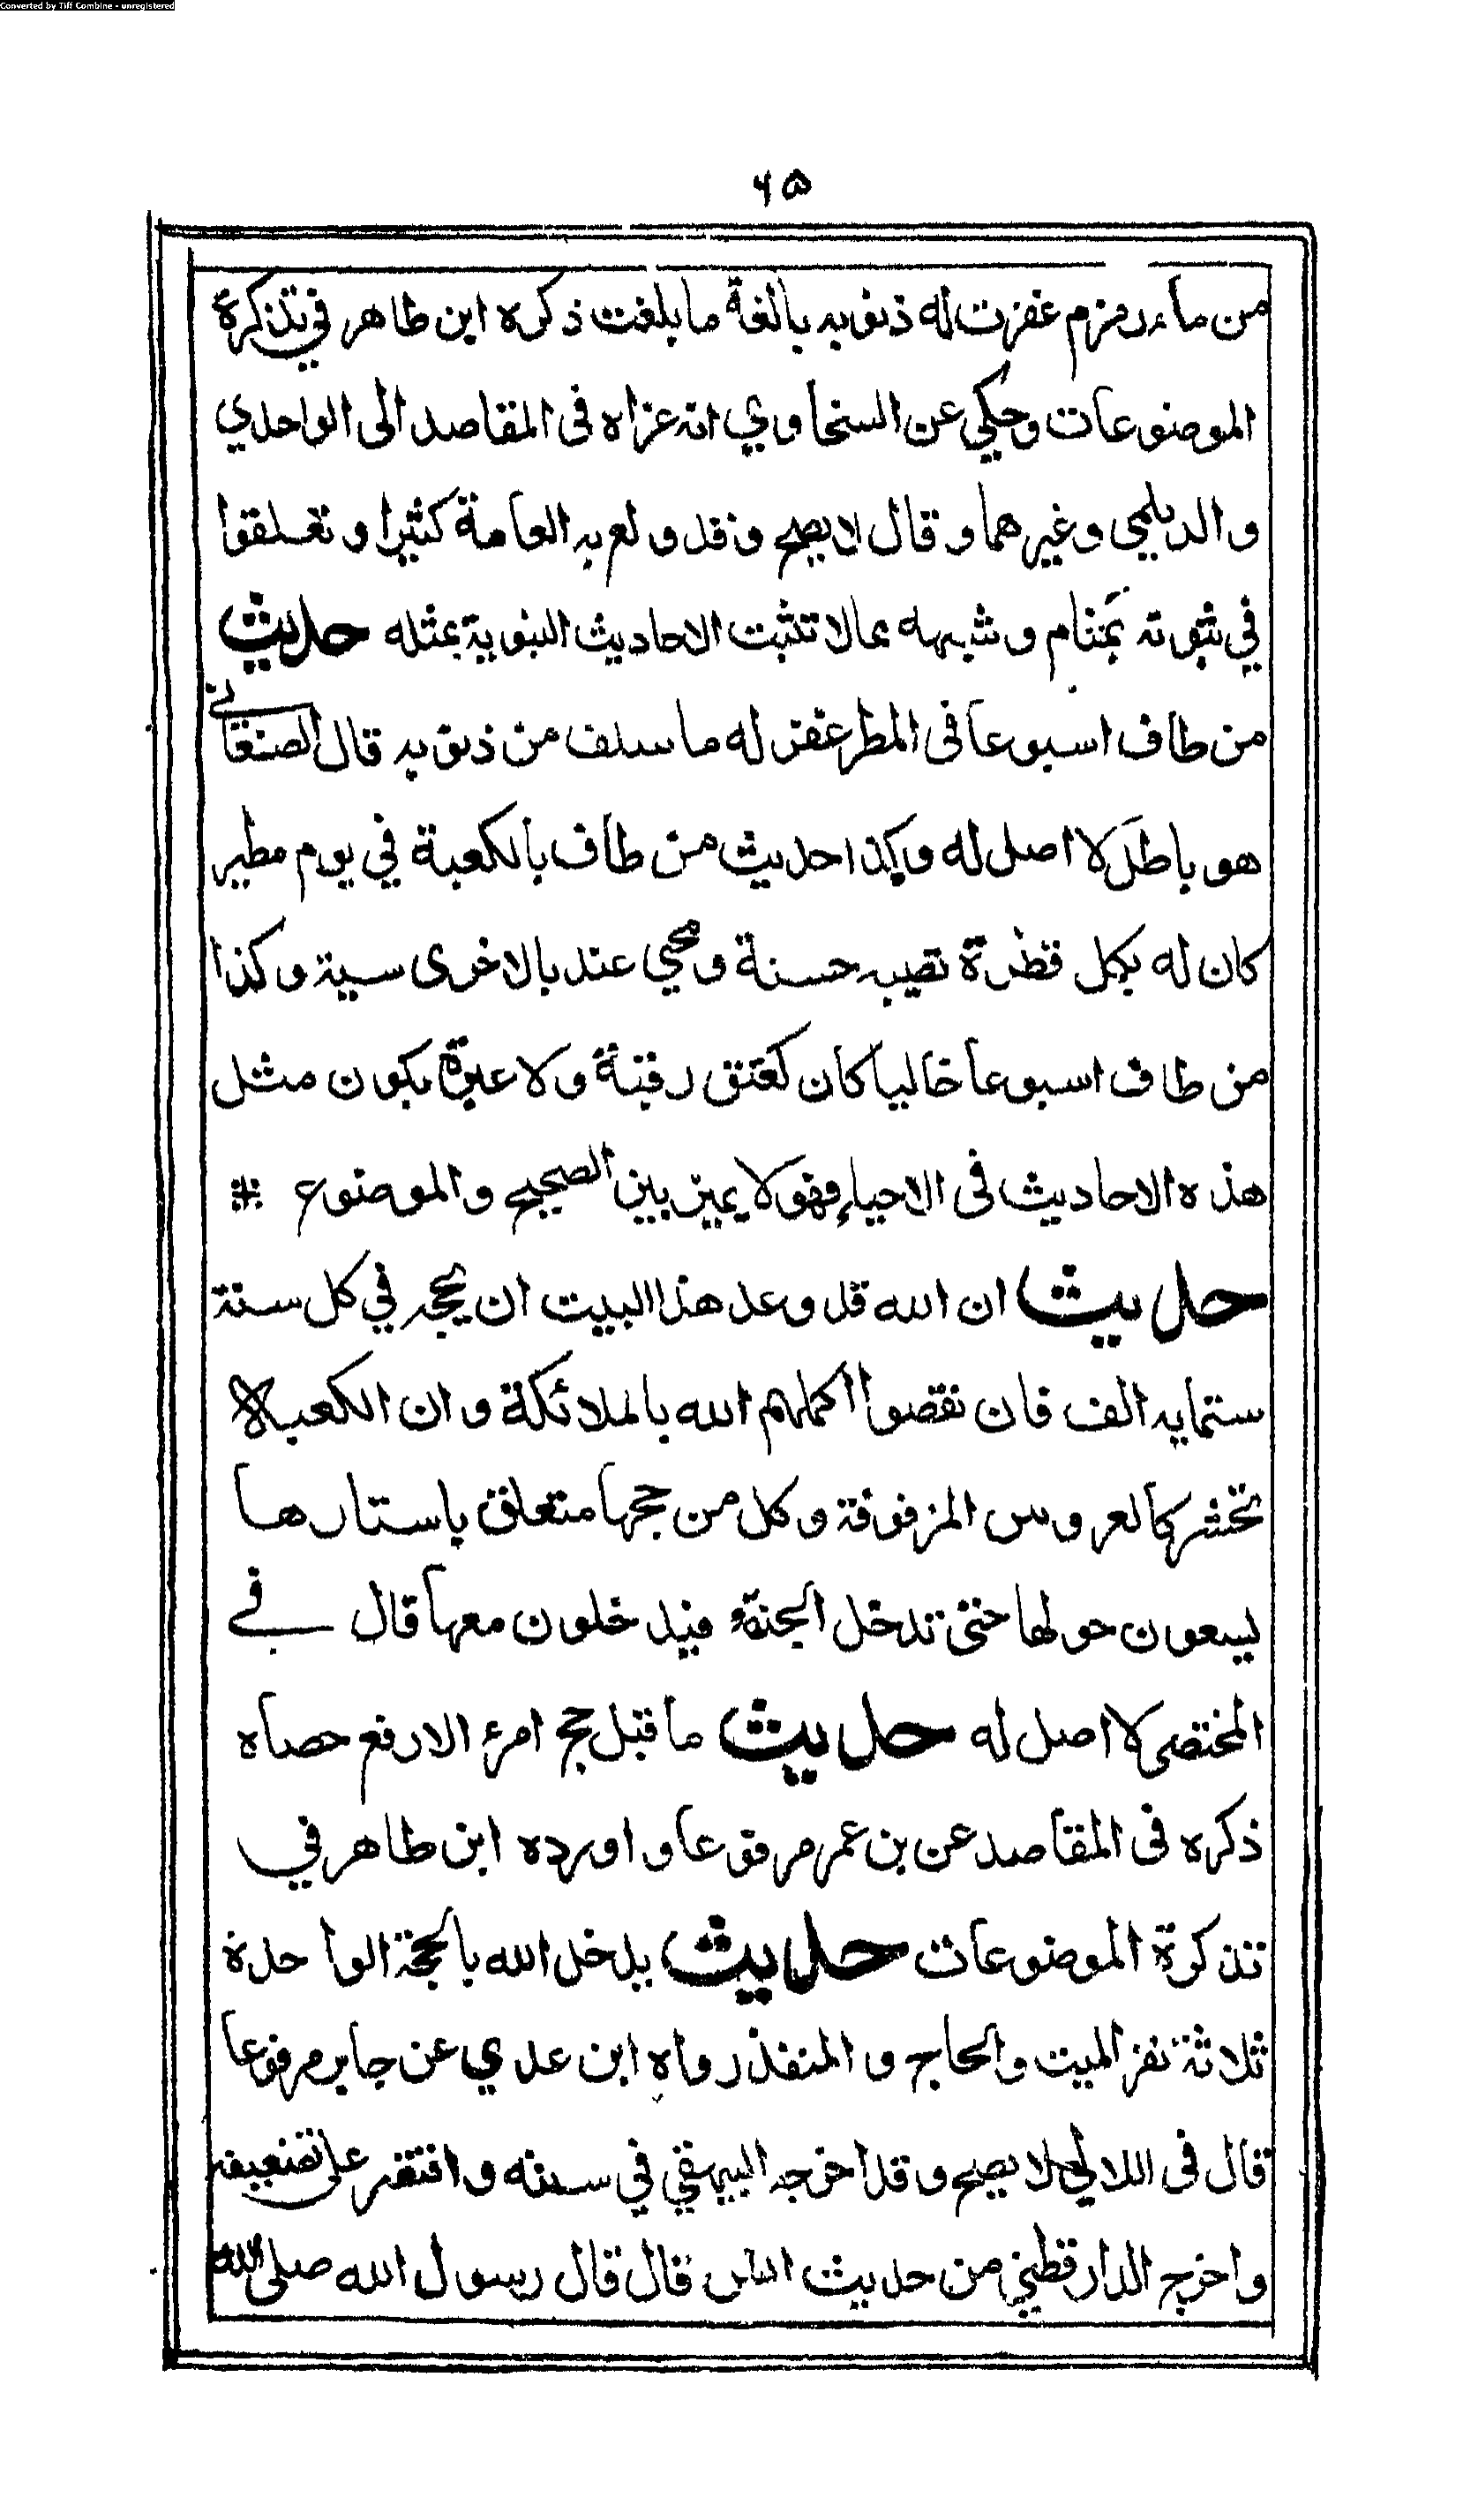 Converted by Tiff Combine - unregistered
٦٥
من ماء زمزم غفرت له ذنوبه بالغة ما بلغت ذكره ابن طاهر في تذكرة
الموضوعات وحكي عن السخاوي انه عزاه فى المقاصد الى الواحدي
والديلمي وغيرهما وقال لا يصح وقد ولع به العامة كثيرا وتعلقوا
في ثبوته بمنام وشبهه مما لا تثبت الاحاديث النبوية بمثله حديث
من طاف اسبوعا فى المطر غفر له ما سلف من ذنوبه قال الصنعانے
هو باطل لا اصل له وكذا حديث من طاف بالكعبة في يوم مطير
كان له بكل قطرة تصيبه حسنة ومحي عنه بالاخرى سية وكذا
من طاف اسبوعا خاليا كان كعتق رقبة ولا عبرة بكون مثل
هذه الاحاديث فى الاحياء فهو لا يميز بين الصحيح والموضوع #
حديث ان الله قد وعد هذا البيت ان يحجه في كل سنة
ستمايه الف فان نقصوا اكملهم الله بالملائكة وان الكعبه
تحشر كالعروس المزفوفة وكل من حجها متعلق باستارها
يسعون حولها حتى تدخل الجنة فيدخلون معها قال فے
المختصر لا اصل له حديث ما قبل حج امرئ الا رفع حصاه
ذكره فى المقاصد عن بن عمر مرفوعا واورده ابن طاهر في
تذكرة الموضوعات حديث يدخل الله بالحجة الواحدة
ثلاثة نفر الميت والحاج والمنفذ رواه ابن عدي عن جابر مرفوعا
قال فى اللالي لا يصح وقد اخرجه البيهقي في سننه واقتصر على تضعيفه
واخرج الدارقطني من حديث انس قال قال رسول الله صلى الله